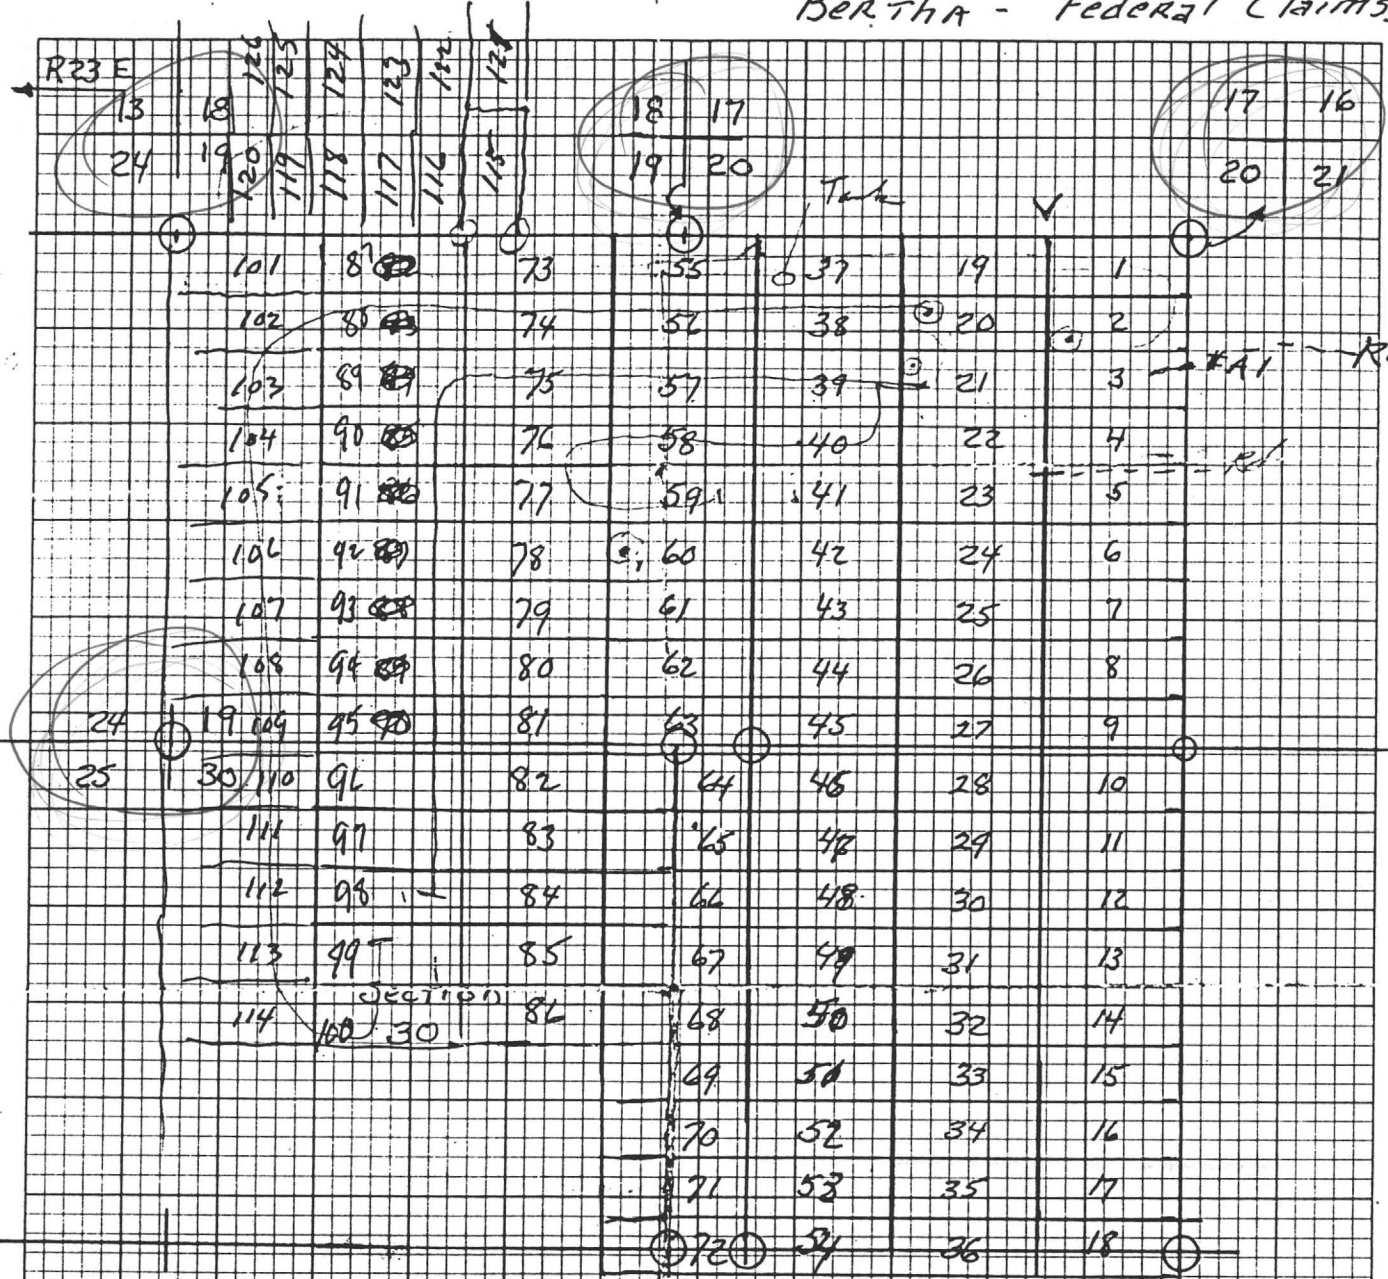 BERTHA - Federal Claims
R23 E
126 125 124 123 122 121
13 18
24 19
120 119 118 117 116 115
18 17
19 20
17 16
20 21
Tank
101 87 73 55 37 19 1
102 88 74 56 38 20 2
103 89 75 57 39 21 3
#A1
104 90 76 58 40 22 4
Rd.
105 91 77 59 41 23 5
106 92 78 60 42 24 6
107 93 79 61 43 25 7
108 94 80 62 44 26 8
24 19 109 95 81 63 45 27 9
25 30 110 96 82 64 46 28 10
111 97 83 65 47 29 11
112 98 84 66 48 30 12
113 99 85 67 49 31 13
Section
114 100 30 86 68 50 32 14
69 51 33 15
70 52 34 16
71 53 35 17
72 54 36 18